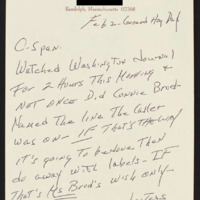 Randolph, Massachusetts 02368
Feb 2 - Ground Hog Day
C-Span.
Watched Washington Journal
For 2 Hours This Morning &
NOT ONCE Did Connie Brod -
Named the line the Caller
was on - IF THAT'S THE WAY
it's going to be done then
do away with labels - IF
That's Ms Brod's wish only -